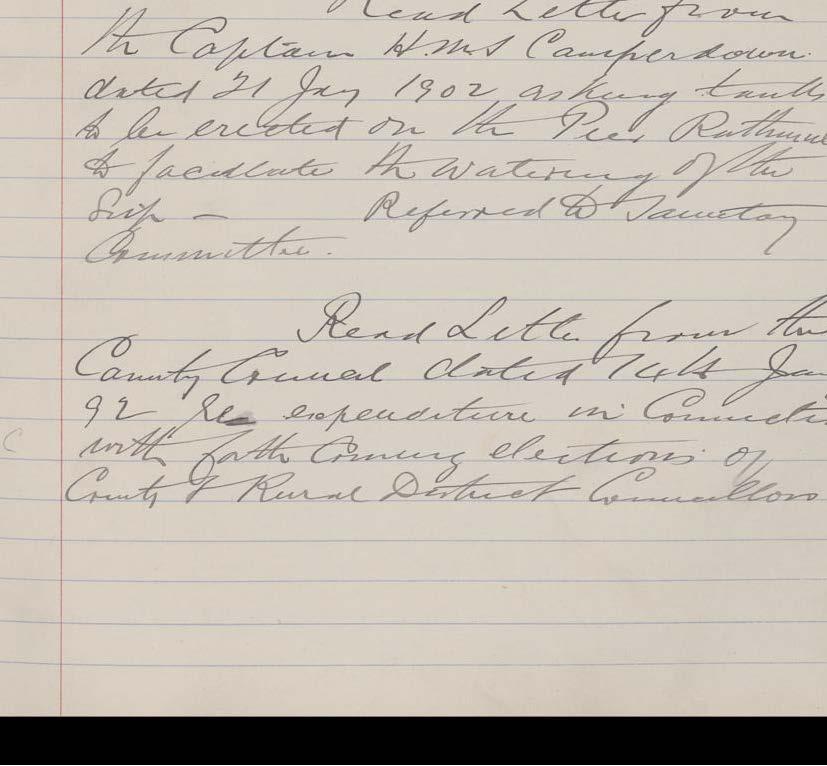 Read Letter from
the Captain H.M.S Camperdown
dated 21 Jany 1902 asking tanks
to be erected on the Pier Rathmul
to facilitate the watering of the
Ship — Referred to Sanitary
Committee.
Read Letter from the
County Council dated 14th Jan
92 Re expenditure in Connecti
with forth Coming elections of
County & Rural District Councillors